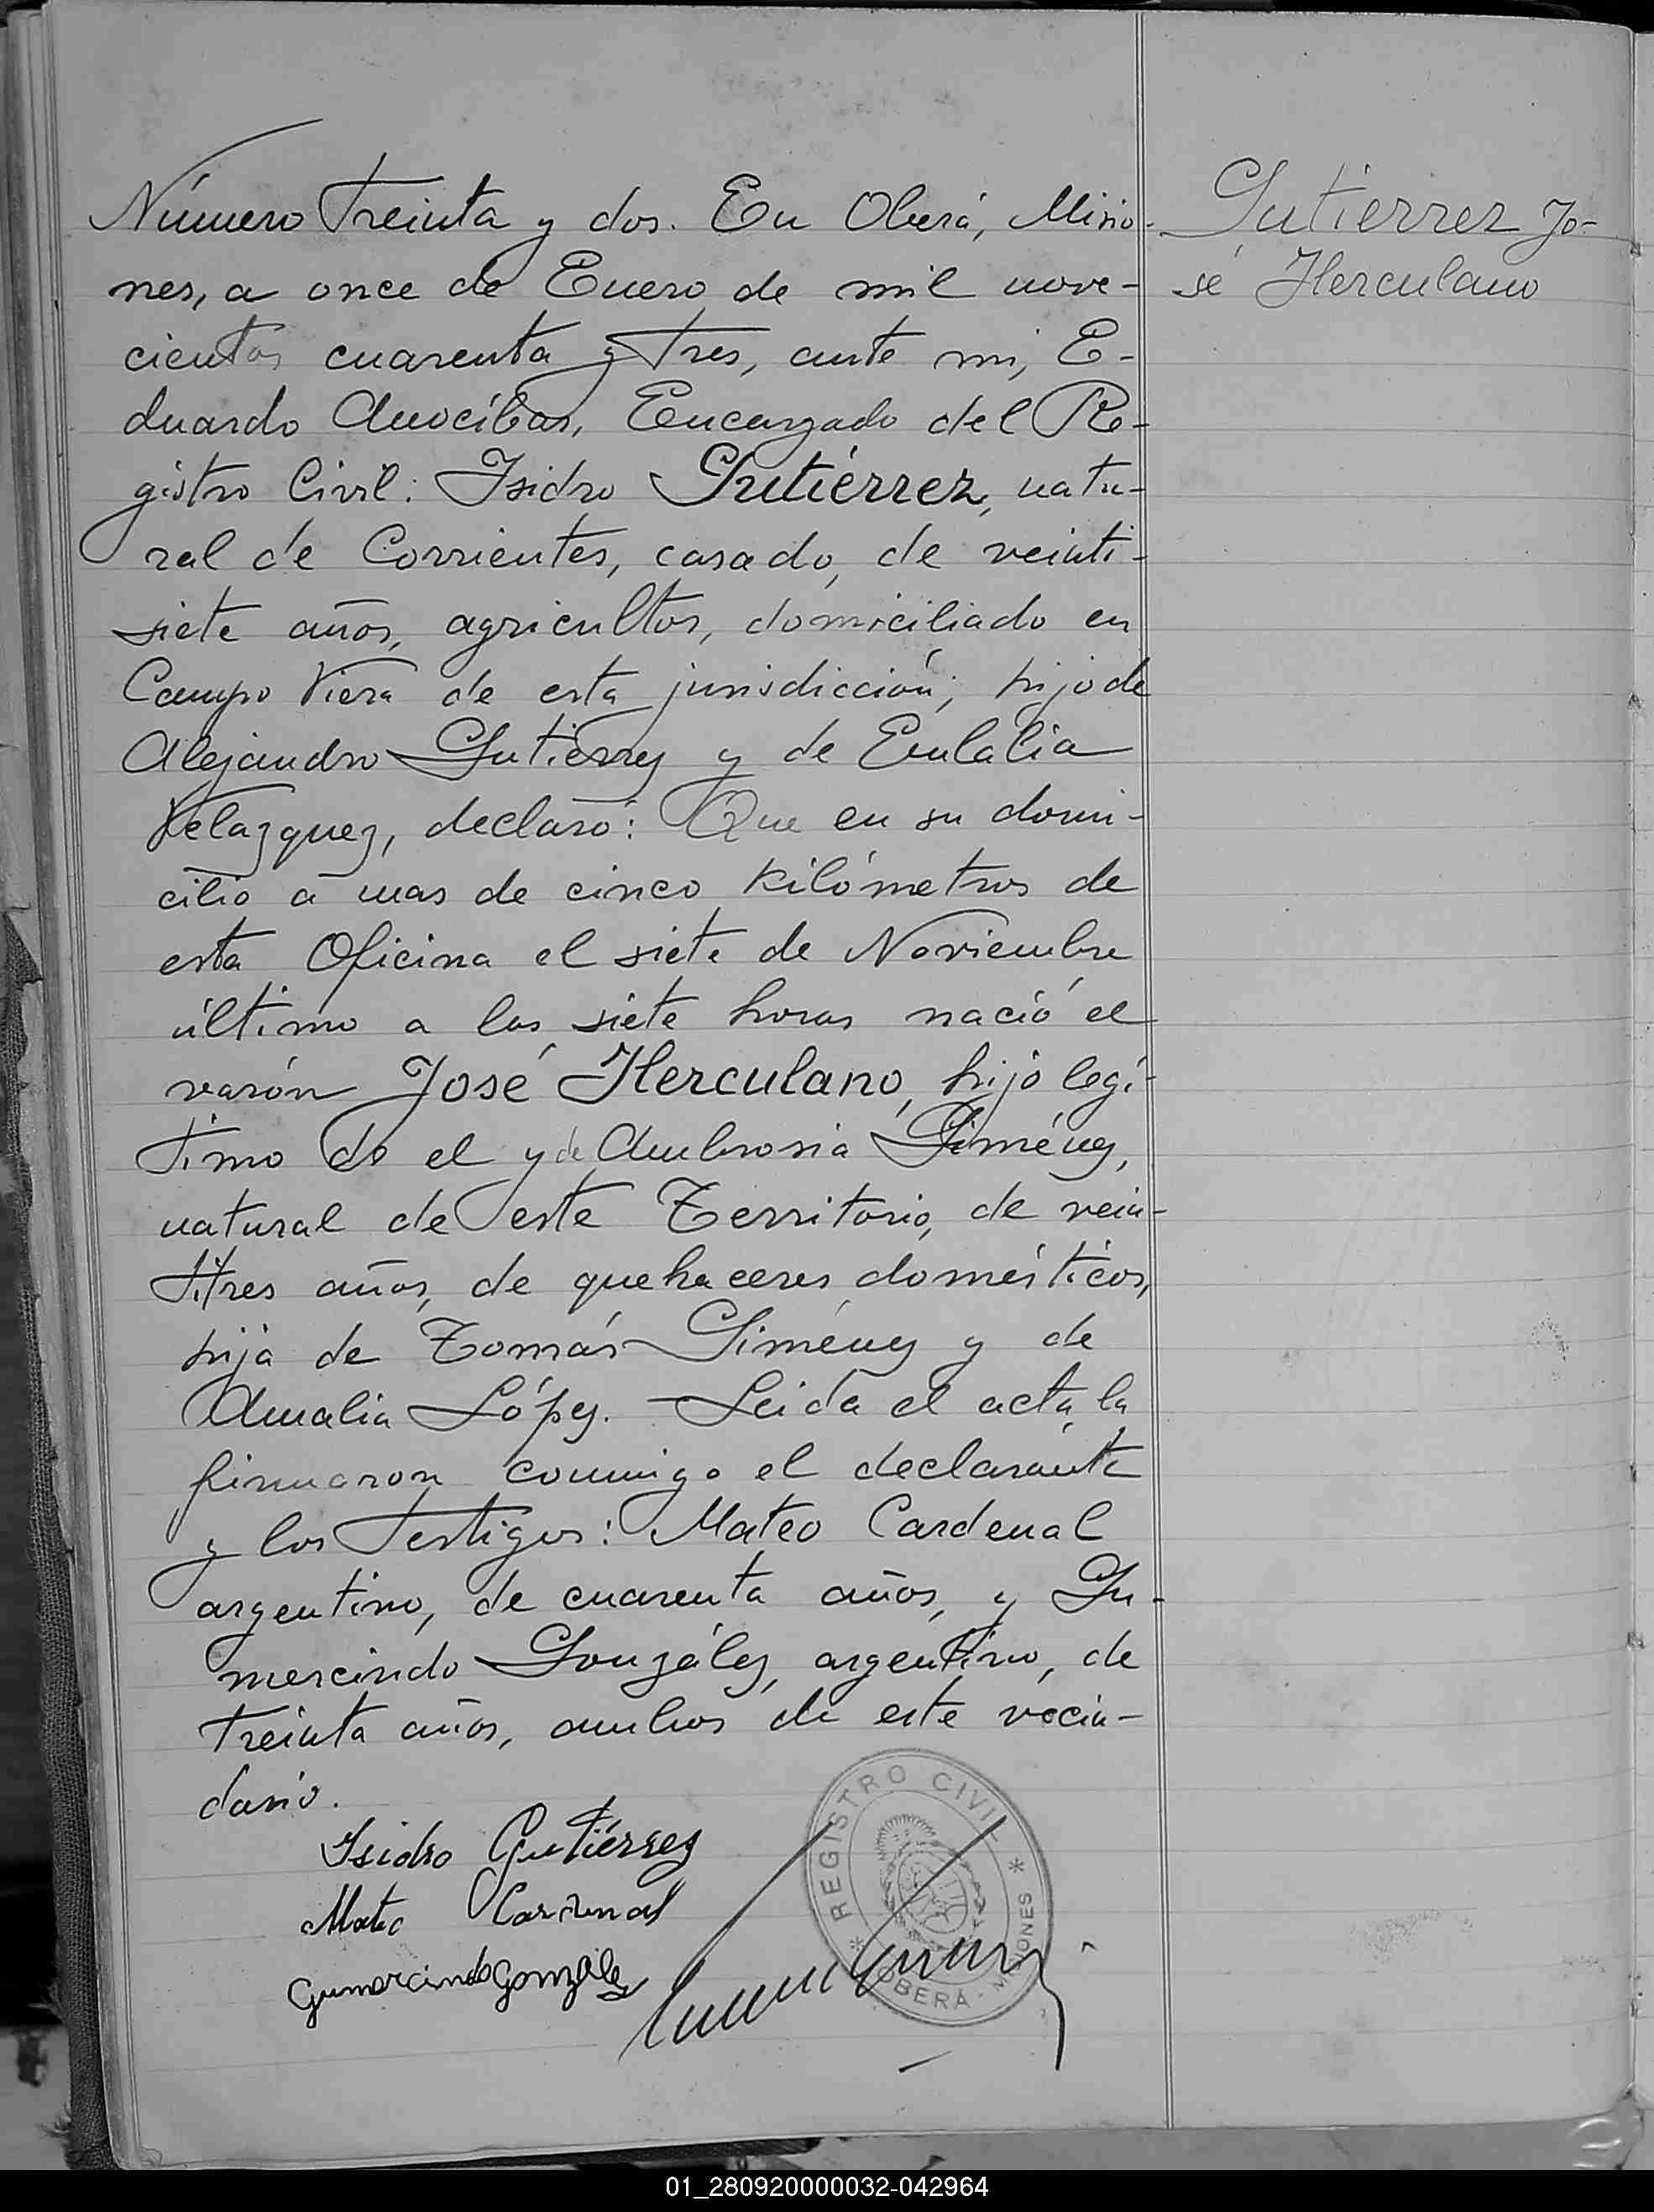 Número Treinta y dos. En Oberá, Misio-
nes, a once de Enero de mil nove-
cientos cuarenta y tres, ante mi, E-
duardo Anocíbar, Encargado del Re-
gistro Civil: Isidro Gutiérrez, natu-
ral de Corrientes, casado, de veinti-
siete años, agricultor, domiciliado en
Campo Viera de esta jurisdicción; hijo de
Alejandro Gutiérrez y de Eulalia
Velazquez, declaró: Que en su domi-
cilio a mas de cinco kilómetros de
esta Oficina el siete de Noviembre
último a las siete horas nació el
varón José Herculano, hijo legí-
timo de el y de Ambrosia Giménez,
natural de este Territorio, de vein-
titres años, de quehaceres domésticos,
hija de Tomás Giménez y de
Amalia López. Leida el acta, la
firmaron conmigo el declarante
y los Testigos: Mateo Cardenal
argentino, de cuarenta años, y Gu-
mercindo González, argentino, de
treinta años, ambos de este vecin-
dario.
Gutiérrez Jo-
sé Herculano
Isidro Gutiérrez
Mateo Cardenal
Gumercindo González
REGISTRO CIVIL
* OBERÁ - MISIONES *
01_280920000032-042964